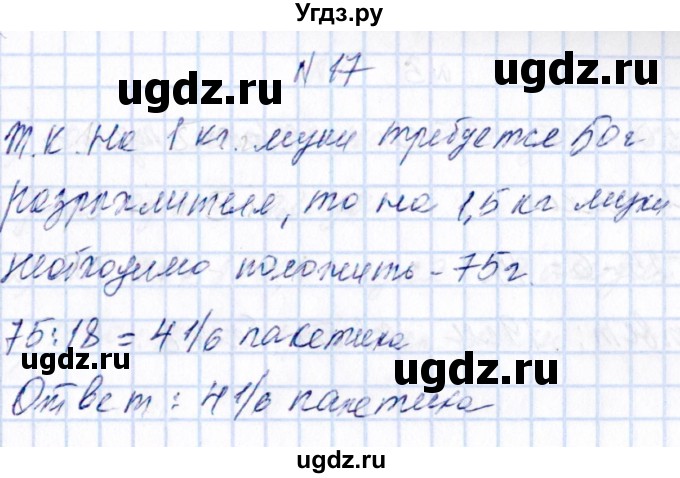 Угдз.ру
N 17
ugdz.ru ugdz.ru
т.к. на 1 кг. муки требуется 50г
разрыхлителя, то на 1,5 кг муки
ugdz.ru ugdz.ru
необходимо положить - 75г.
75:18 = 4 1/6 пакетика
ugdz.ru ugdz.ru
Ответ: 4 1/6 пакетика
ugdz.ru